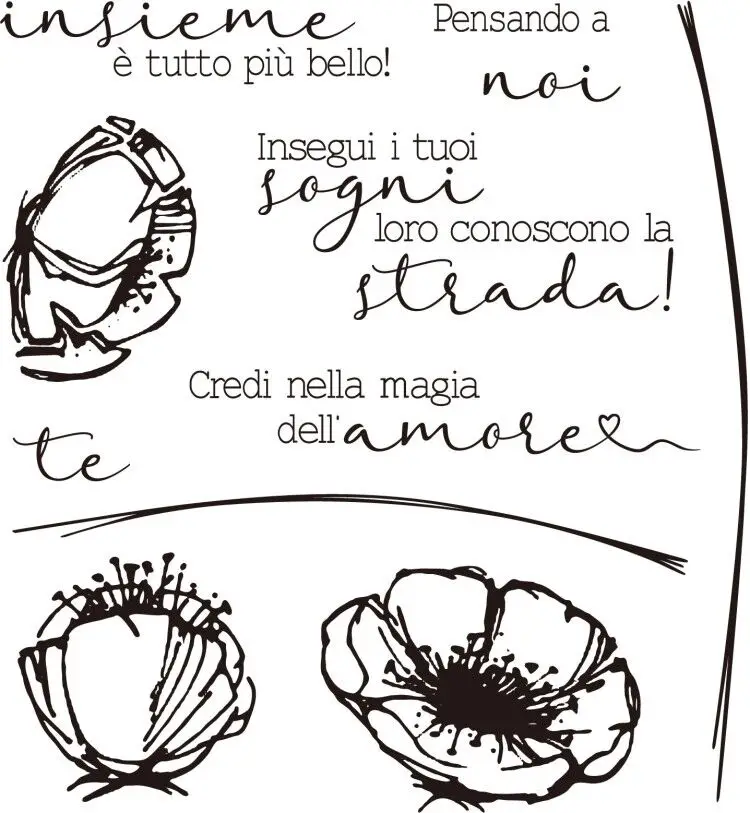 insieme
è tutto più bello!
Pensando a
noi
Insegui i tuoi
sogni
loro conoscono la
strada!
Credi nella magia
dell'amore
te